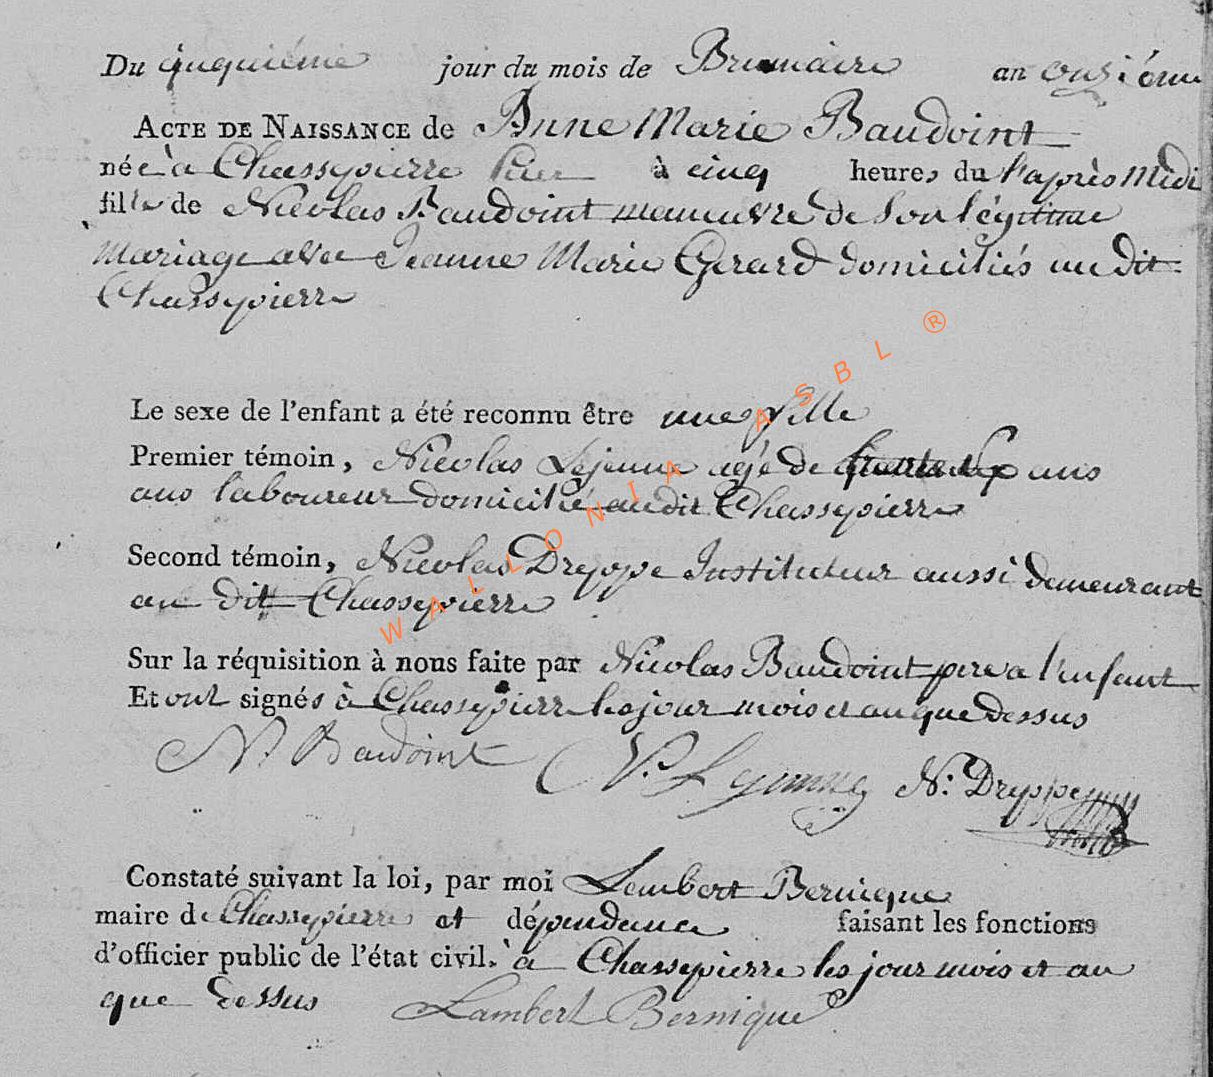 Du cinquiéme jour du mois de Brumaire an onziéme
ACTE DE NAISSANCE de Anne Marie Baudoint
née à Chassepierre hier à cinq heures du l'après Midi
fille de Nicolas Baudoint maneuvre de son légitime
Mariage avec Jeanne Marie Gerard domiciliés au dit
Chassepierre
Le sexe de l'enfant a été reconnu être une fille
Premier témoin, Nicolas Lejeune agé de ans
ans laboureur domicilié audit Chassepierre
Second témoin, Nicolas Dreppe Instituteur aussi demeurant
au dit Chassepierre
Sur la réquisition à nous faite par Nicolas Baudoint pere a l'enfant
Et ont signés à Chassepierre les jour mois et an que dessus
N. Baudoint N. Lejeune N: Dreppe
Constaté suivant la loi, par moi Lambert Bernique
maire de Chassepierre et dépendance faisant les fonctions
d'officier public de l'état civil. à Chassepierre les jour mois et an
que dessus Lambert Bernique
WALLONIA ASBL ®